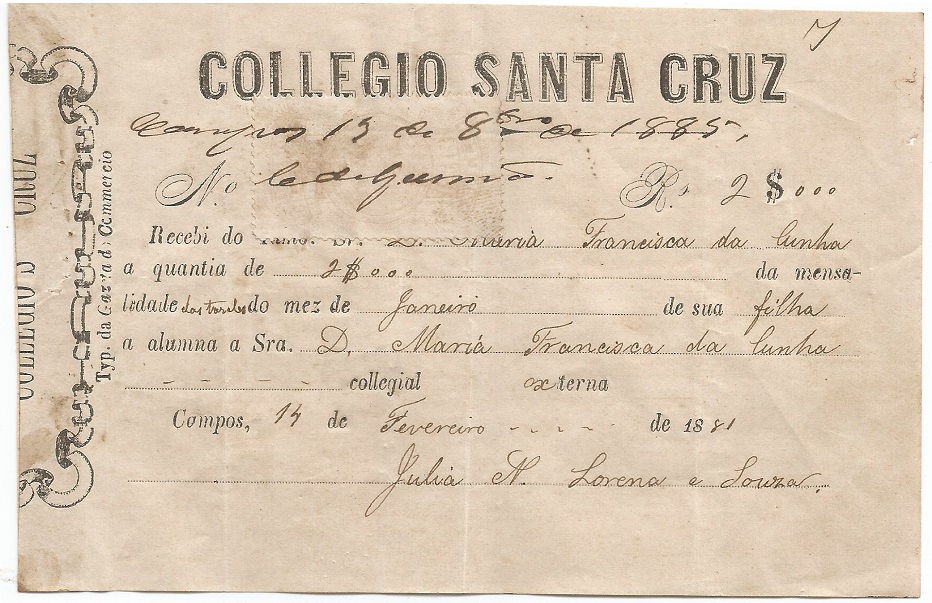 7
COLLEGIO SANTA CRUZ
Campos 13 de 8bro de 1885,
No
Rs 2$000
Recebi do Illmo. Sr. D. Maria Francisca da Cunha
a quantia de 2$000 da mensa-
lidade do mez de Janeiro de sua filha
a alumna a Sra. D. Maria Francisca da Cunha
collegial externa
Campos, 14 de Fevereiro de 1881
Julia N. Lorena e Souza.
COLLEGIO S CRUZ
Typ. da Gazeta do Commercio